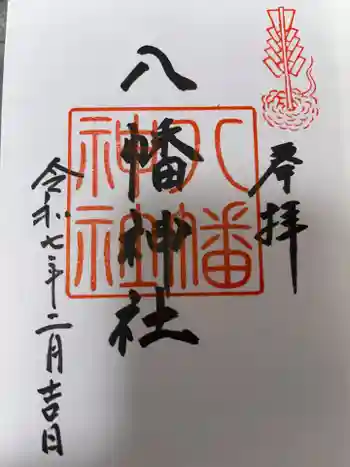 奉拝
八幡神社
八幡
神社
令和七年二月吉日